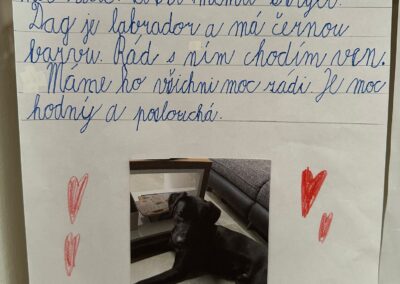 Dag je labrador a má černou
barvou. Rád s ním chodím ven.
Máme ho všichni moc rádi. Je moc
hodný a poslouchá.